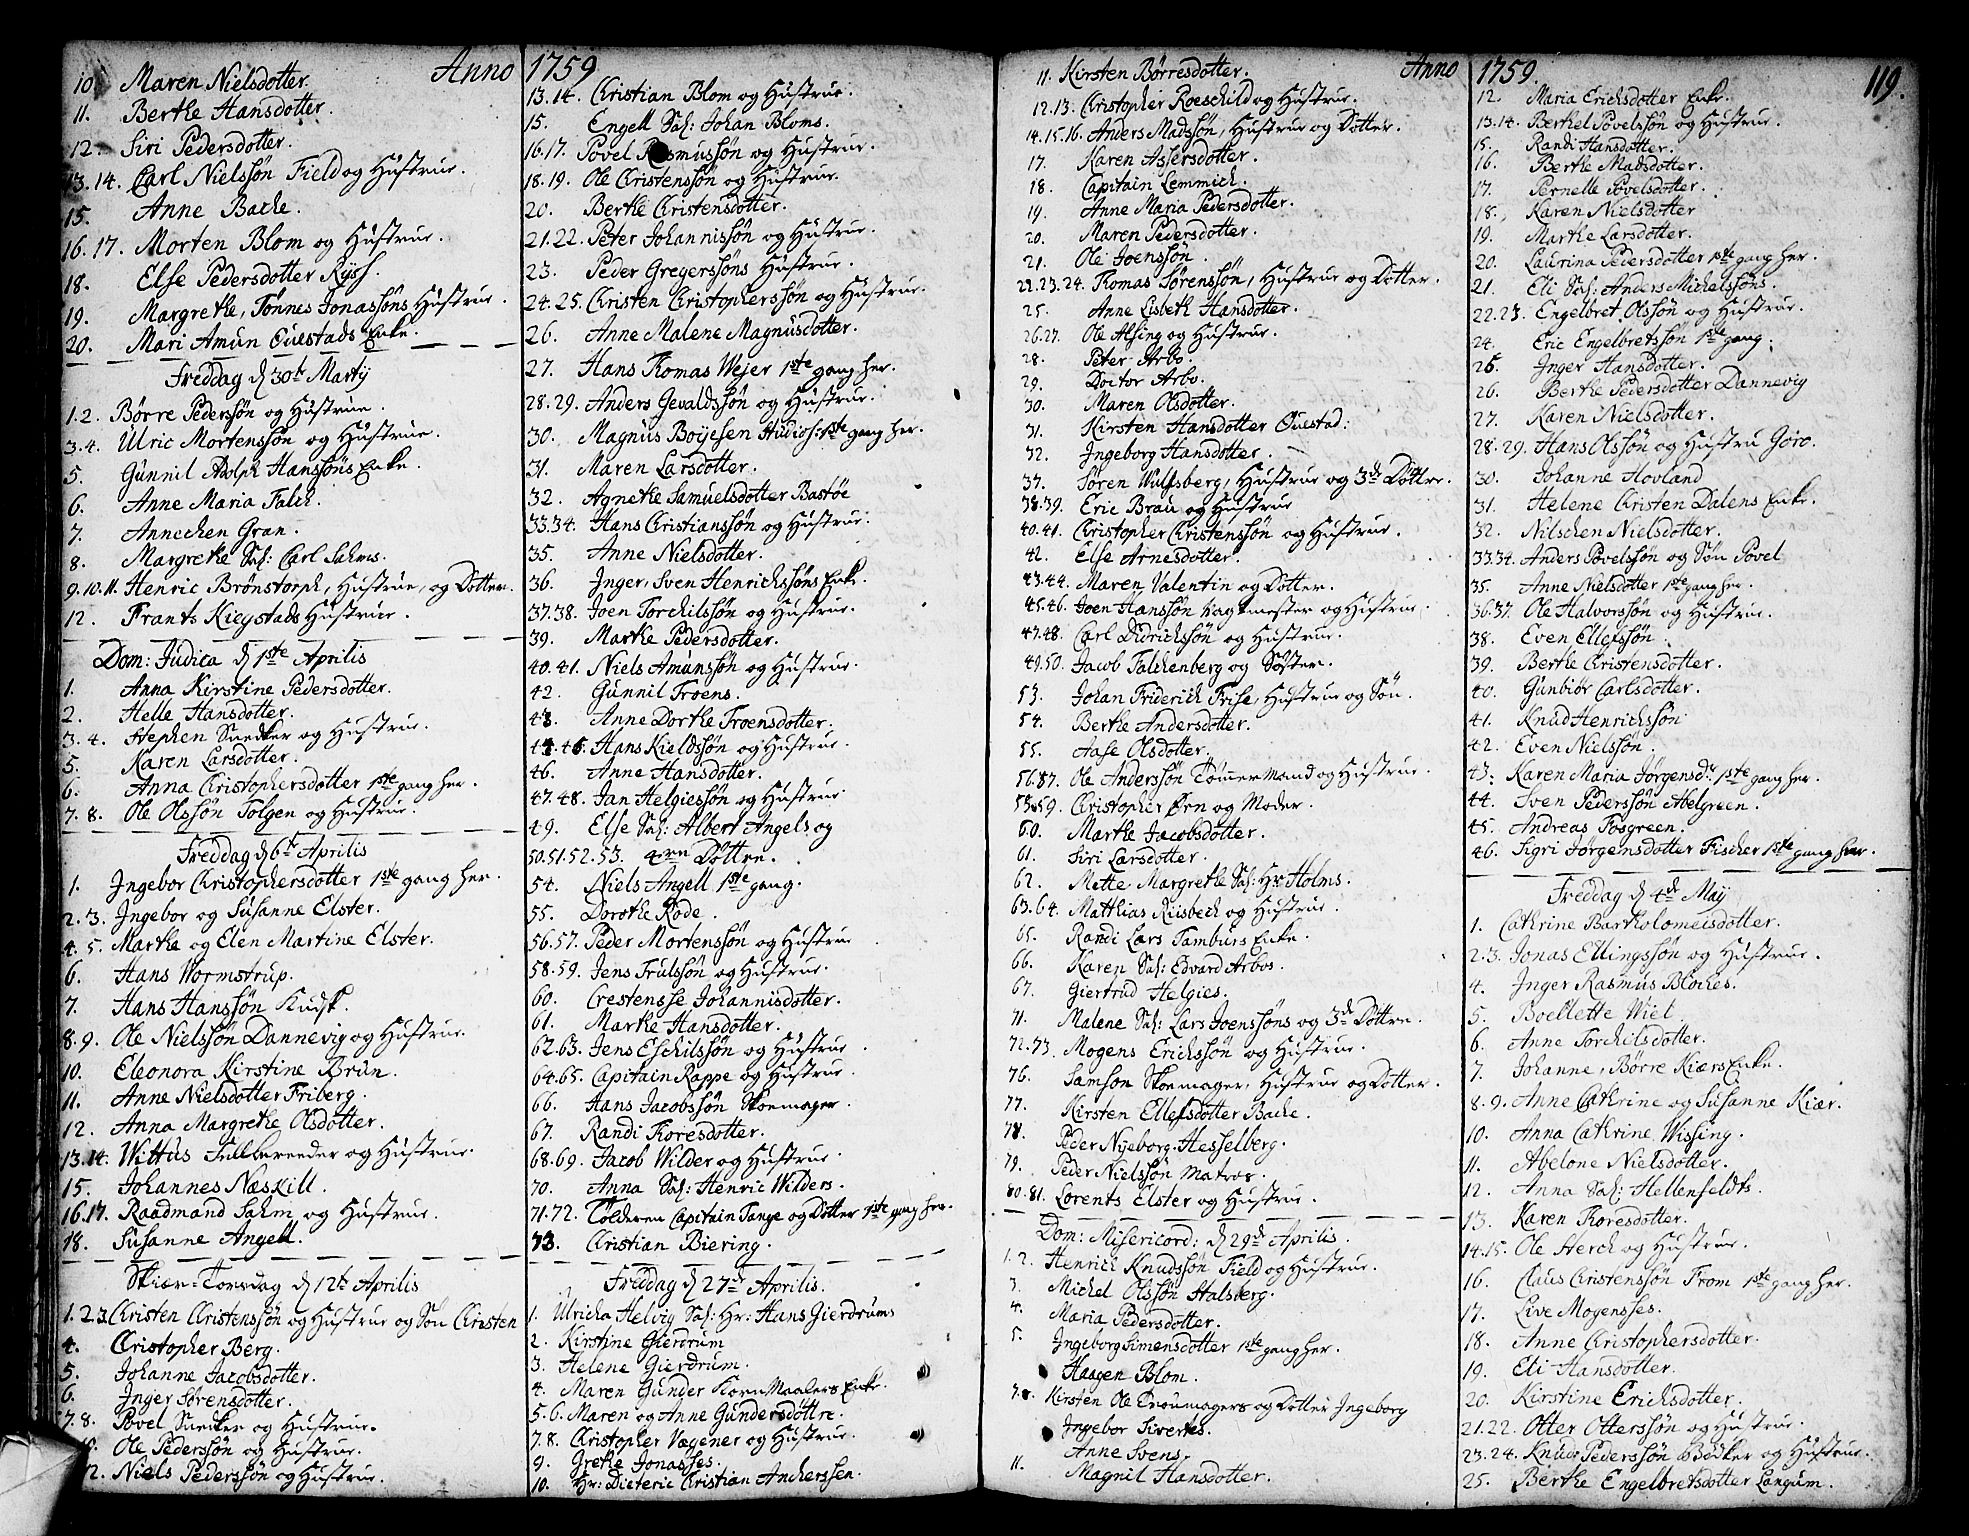 Anno 1759
10. Maren Nielsdotter.
11. Berthe Hansdotter.
12. Siri Pedersdotter.
13.14. Carl Nielssøn Field og Hustrue.
15. Anne Bache.
16.17. Morten Blom og Hustrue.
18. Else Pedersdotter Ryss.
19. Margrethe, Tønnes Jonassøns Hustrue.
20. Mari Amun Enke.
Freddag d 30te Martij
1.2. Børre Pederssøn og Hustrue.
3.4. Ulric Mortenssøn og Hustrue.
5. Gunnil Adolph Hanssøns Enke.
6. Anne Maria Falch.
7. Annechen Gran.
8. Margrethe Sal: Carl Sahms.
9.10.11. Henric Brønstorph, Hustrue, og Dotter.
12. Frants Kiegstads Hustrue.
Dom: Judica d 1ste Aprilis
1. Anna Kirstine Pedersdotter.
2. Helle Hansdotter.
3.4. Stephen Snedker og Hustrue.
5. Karen Larsdotter.
6. Anna Christophersdotter 1ste gang her.
7.8. Ole Olssøn Folgen og Hustrue.
Freddag d 6te Aprilis
1. Ingebor Christophersdotter 1ste gang her.
2.3. Ingebor og Susanne Elster.
4.5. Marthe og Elen Martine Elster.
6. Hans Wormstrup.
7. Hans Hanssøn Kudsk.
8.9. Ole Nielssøn Dannevig og Hustrue.
10. Eleonora Kirstine Brun.
11. Anne Nielsdotter Friberg.
12. Anna Margrethe Olsdotter.
13.14. Wittus Fellbereeder og Hustrue.
15. Johannes Næskill.
16.17. Raadmand Sahm og Hustrue.
18. Susanne Angell.
Skiær-Torsdag d 12te Aprilis
1.2.3. Christen Christenssøn og Hustrue og Søn Christen
4. Christopher Berg.
5. Johanne Jacobsdotter.
6. Inger Sørensdotter.
7.8. Povel Snedker og Hustrue.
Ole Pederssøn og Hustrue.
12. Niels Pederssøn og Hustrue.
13.14. Christian Blom og Hustrue.
15. Engell Sal: Johan Bloms.
16.17. Povel Rasmussøn og Hustrue.
18.19. Ole Christenssøn og Hustrue.
20. Berthe Christensdotter.
21.22. Peter Johannissøn og Hustrue.
23. Peder Gregerssøns Hustrue.
24.25. Christen Christopherssøn og Hustrue.
26. Anne Malene Magnusdotter.
27. Hans Thomas Wejer 1ste gang her.
28.29. Anders Gevaldssøn og Hustrue.
30. Magnus Boijesen Studios: 1ste gang her.
31. Maren Larsdotter.
32. Agnethe Samuelsdotter Bastøe
33.34. Hans Christianssøn og Hustrue.
35. Anne Nielsdotter.
36. Inger, Sven Henrichssøns Enke.
37.38. Joen Torchilssøn og Hustrue.
39. Marthe Pedersdotter.
40.41. Niels Amunssøn og Hustrue.
42. Gunnil Troens.
43. Anne Dorthe Troensdotter.
44.45. Hans Kieldssøn og Hustrue.
46. Anne Hansdotter.
47.48. Jan Helgiessøn og Hustrue.
49. Else Sal: Albert Angels og
50.51.52.53. 4re Døttre.
54. Niels Angell 1ste gang.
55. Dorothe Rode.
56.57. Peder Mortenssøn og Hustrue
58.59. Jens Trulssøn og Hustrue.
60. Crestensse Johannisdotter.
61. Marthe Hansdotter.
62.63. Jens Eschilssøn og Hustrue
64.65. Capitain Rappe og Hustrue.
66. Hans Jacobssøn Skoemager.
67. Randi Thoresdotter.
68.69. Jacob Wilder og Hustrue.
70. Anna Sal: Henric Wilders.
71.72. Tolderen Capitain Tange og Dotter 1ste gang her.
73. Christian Biering.
Freddag d 27de Aprilis.
1. Ulricha Helvig Sal: Hr: Hans Gierdrums
2. Kirstine Gierdrum
3. Helene Gierdrum.
4. Maren Gunder Korn Maalers Enke.
5.6. Maren og Anne Gundersdøttre.
7.8. Christopher Wegener og Hustrue.
9. Grethe Jonasses.
10. Hr: Dieteric Christian Ancherssen.
Anno 1759. 119.
11. Kirsten Børresdotter.
12.13. Christopher Roeschild og Hustrue.
14.15.16. Anders Madssøn, Hustrue og Dotter.
17. Karen Assersdotter.
18. Capitain Lemmich.
19. Anne Maria Pedersdotter.
20. Maren Pedersdotter.
21. Ole Joenssøn.
22.23.24. Thomas Sørenssøn, Hustrue og Dotter.
25. Anne Lisbeth Hansdotter.
26.27. Ole Alsing og Hustrue.
28. Peter Arbo.
29. Doctor Arbo.
30. Maren Olsdotter.
31. Kirsten Hansdotter Øuestad:
32. Ingeborg Hansdotter.
37. Søren Wulfsberg, Hustrue og 3de Døttre.
38.39. Eric Brau og Hustrue
40.41. Christopher Christenssøn og Hustrue.
42. Else Arnesdotter.
43.44. Maren Valentin og Dotter.
45.46. Joen Hanssøn Hagemester og Hustrue.
47.48. Carl Didrichssøn og Hustrue.
49.50. Jacob Falckenberg og Søster.
53. Johan Friderich Frise, Hustrue og Søn.
54. Berthe Andersdotter.
55. Aase Olsdotter.
56.57. Ole Anderssøn Tømmermand og Hustrue.
58.59. Christopher Ørn og Moder.
60. Marthe Jacobsdotter.
61. Siri Larsdotter.
62. Mette Margrethe Sal: Hr Holms.
63.64. Matthias Riisbech og Hustrue.
65. Randi Lars Tamburs Enke.
66. Karen Sal: Edvard Arbos.
67. Giertrud Helgies.
71. Malene Sal: Lars Joenssøns og 3de Døttre.
72.73. Mogens Erichssøn og Hustrue.
76. Samson Skoemager, Hustrue og Dotter.
77. Kirsten Ellefsdotter Bache.
78. Peder Nyeborg Hesselberg.
79. Peder Nielssøn Matros.
80.81. Lorents Elster og Hustrue.
Dom: Misericord: d 29de Aprilis.
1.2. Henrich Knudssøn Field og Hustrue.
3. Michel Olssøn Stalsberg.
4. Maria Pedersdotter.
5. Ingeborg Simensdotter 1ste gang her.
Haagen Blom.
7.8. Kirsten Ole og Dotter Ingeborg
Ingebor Siverts.
Anne Svens.
11. Magnil Hansdotter.
12. Maria Erichsdotter Enke.
13.14. Berthel Povelssøn og Hustrue.
15. Randi Hansdotter.
16. Berthe Madsdotter.
17. Pernelle Povelsdotter.
18. Karen Nielsdotter
19. Marthe Larsdotter.
20. Laurina Pedersdotter 1ste gang her.
21. Eli Sal: Anders Michelssøns.
22.23. Engelbret Olssøn og Hustrue.
24. Eric Engelbretssøn 1ste gang.
25. Inger Hansdotter.
26. Berthe Pedersdotter Dannevig
27. Karen Nielsdotter.
28.29. Hans Olssøn og Hustru Goro.
30. Johanne Hovland
31. Helene Christen Dalens Enke.
32. Nilschen Nielsdotter.
33.34. Anders Povelssøn og Søn Povel
35. Anne Nielsdotter 1ste gang her.
36.37. Ole Halvorssøn og Hustrue.
38. Even Ellefssøn.
39. Berthe Christensdotter.
40. Gunbiør Carlsdotter.
41. Knud Henrichssøn
42. Even Nielssøn.
43. Karen Maria Jørgensdr. 1ste gang her.
44. Sven Pederssøn Abelgreen.
45. Andreas Fosgreen.
46. Sigri Jørgensdotter Fischer 1ste gang her.
Freddag d 4de Maij
1. Cathrine Bartholomeisdotter.
2.3. Jonas Ellingssøn og Hustrue.
4. Inger Rasmus Bloches.
5. Boellette Wiel.
6. Anne Torchilsdotter.
7. Johanne, Børre Kiærs Enke.
8.9. Anne Cathrine og Susanne Kiær.
10. Anna Cathrine Wissing.
11. Abelone Nielsdotter.
12. Anna Sal: Hellenfeldts.
13. Karen Thoresdotter.
14.15. Ole Herch og Hustrue.
16. Claus Christenssøn From 1ste gang her.
17. Live Mogensses.
18. Anne Christophersdotter.
19. Eli Hansdotter.
20. Kirstine Erichsdotter.
21.22. Otter Otterssøn og Hustrue.
23.24. Knud Pederssøn Bødker og Hustrue.
25. Berthe Engelbretsdotter Langum.